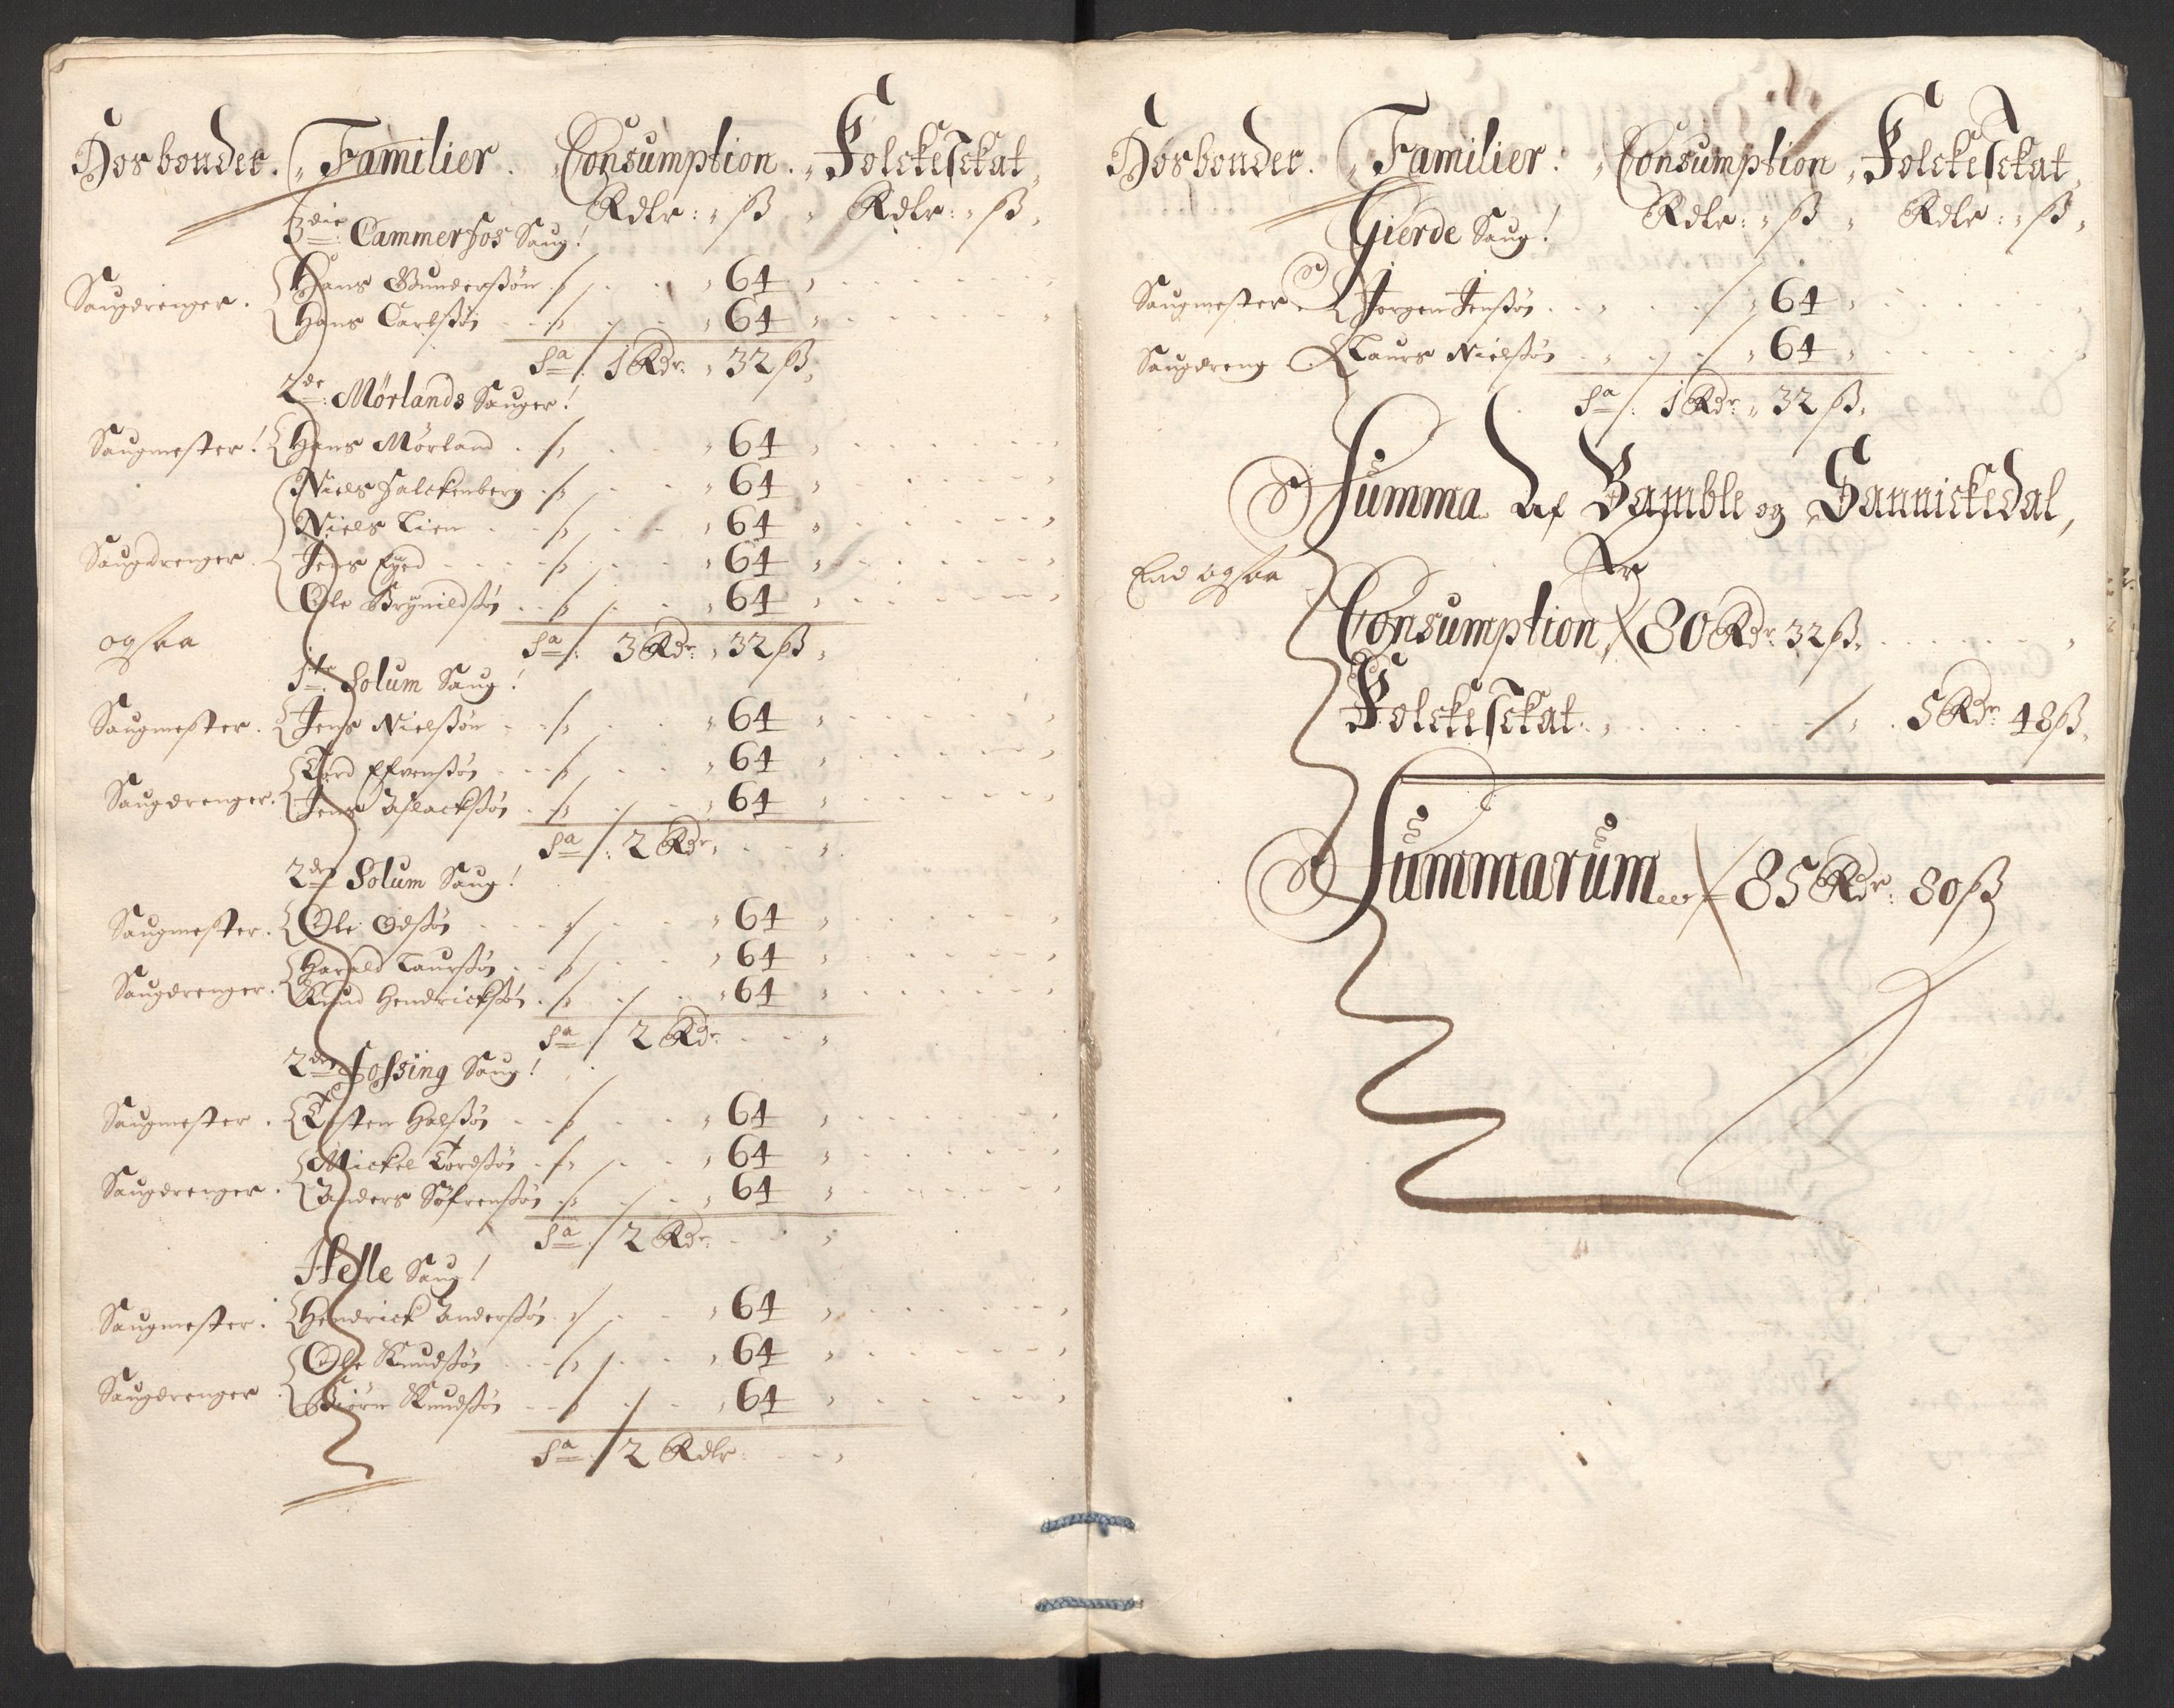 Hosbonder. Familier. Consumption. Folckeskat
Rdlr: ß Rdlr: ß
3die Cammerfos Saug!
Saugdrenger. Hans Gunderßøn 64
Hans Carlsßøn 64
Sa 1 Rdr: 32 ß
2de Mørlands Sauger!
Saugmester! Hans Mørland 64
Niels Falckenberg 64
Niels Lien 64
Saugdrenger. Jens Eged 64
Ole Brynildßøn 64
ogsaa Sa 3 Rdr: 32 ß
1te Solum Saug!
Saugmester. Jens Nielßøn 64
Tord Efvenßøn 64
Saugdrenger. Jens Aslackßøn 64
Sa 2 Rdr
2den Solum Saug!
Saugmester. Ole Odßøn 64
Harald Laurßøn 64
Saugdrenger. Knud Hendrickßøn 64
Sa 2 Rdr
2den Fossing Saug!
Saugmester. Tosten Halßøn 64
Mickel Tordßøn 64
Saugdrenger. Anders Søfrenßøn 64
Sa 2 Rdr
Helle Saug!
Saugmester. Hendrick Anderßøn 64
Ole Knudßøn 64
Saugdrenger Biørn Knudßøn 64
Sa 2 Rdlr:
Hosbonder. Familier. Consumption Folckeskat
Rdlr: ß Rdlr: ß
Gierde Saug!
Saugmester. Jørgen Jenßøn 64
Saugdreng Laurs Nielßøn 64
Sa 1 Rdr: 32 ß
Summa Af Bamble og Sannickedal,
End ogsaa Er
Consumption 80 Rdr: 32 ß
Folckeskat 5 Rdr: 48 ß
Summarum 85 Rdr: 80 ß